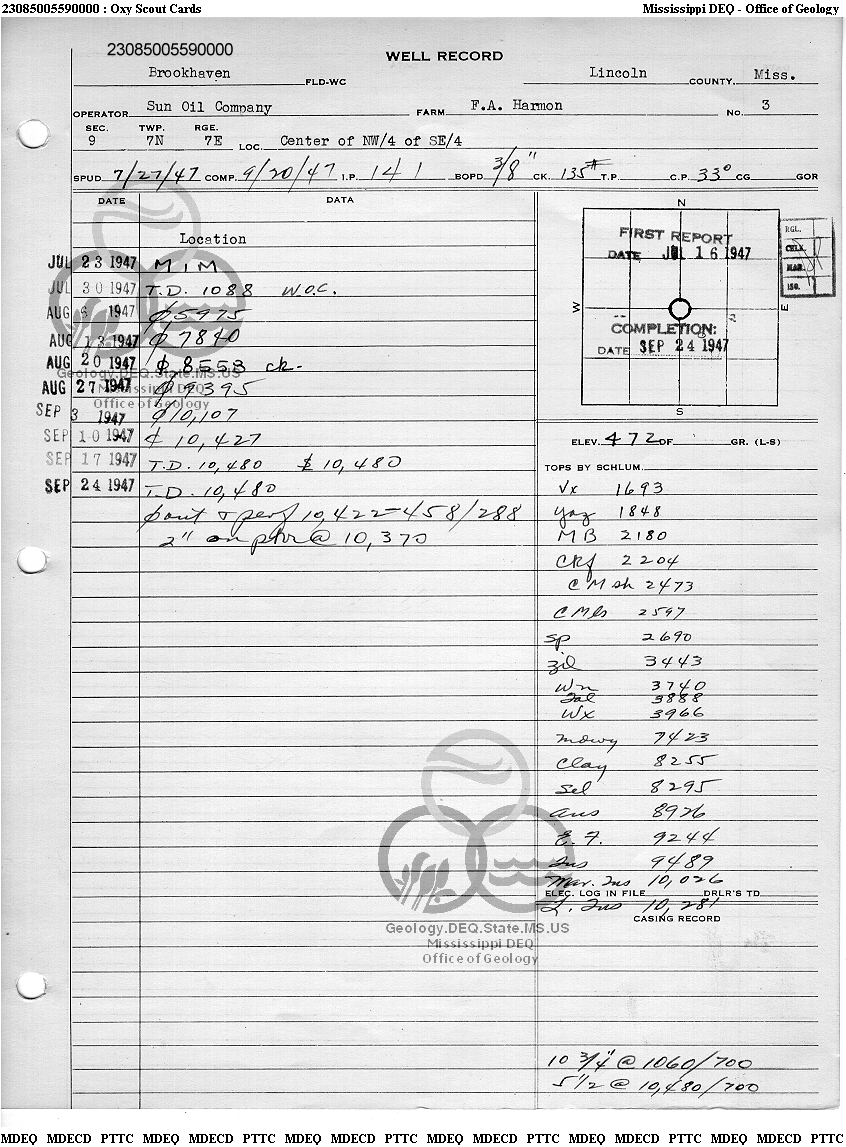 23085005590000 : Oxy Scout Cards Mississippi DEQ - Office of Geology
23085005590000
WELL RECORD
Brookhaven FLD-WC Lincoln COUNTY, Miss.
OPERATOR Sun Oil Company FARM F.A. Harmon NO. 3
SEC. TWP. RGE.
9 7N 7E LOC. Center of NW/4 of SE/4
SPUD 7/27/47 COMP. 9/20/47 I.P. 141 BOPD 3/8" CK. 135# T.P. C.P. 33° CG GOR
DATE DATA
Location
JUL 23 1947 MIM
JUL 30 1947 T.D. 1088 W.O.C.
AUG 6 1947 ȼ 5975
AUG 13 1947 ȼ 7840
AUG 20 1947 ȼ 8553 ck.
AUG 27 1947 ȼ 9395
SEP 3 1947 ȼ 10,107
SEP 10 1947 ȼ 10,427
SEP 17 1947 T.D. 10,480 $ 10,480
SEP 24 1947 T.D. 10,480
ȼout & perf 10,422-458/288
2" on pkr @ 10,370
N
W
E
S
FIRST REPORT
DATE JUL 16 1947
COMPLETION:
DATE SEP 24 1947
RGL.
CHLK.
MAR.
ISO.
ELEV. 472 DF GR. (L-S)
TOPS BY SCHLUM.
Vx 1693
Yaz 1848
MB 2180
Ckf 2204
CM sh 2473
CM ls 2597
Sp 2690
Zil 3443
Wn 3740
Sal 3888
Wx 3966
Mdwy 7423
Clay 8255
Sel 8295
Aus 8926
E.F. 9244
Tus 9489
Mar. Tus 10,026
ELEC. LOG IN FILE DRLR'S TD
L. Tus 10,281
CASING RECORD
10 3/4" @ 1060/700
5 1/2 @ 10,480/700
Geology.DEQ.State.MS.US
Mississippi DEQ
Office of Geology
Geology.DEQ.State.MS.US
Mississippi DEQ
Office of Geology
MDEQ MDECD PTTC MDEQ MDECD PTTC MDEQ MDECD PTTC MDEQ MDECD PTTC MDEQ MDECD PTTC MDEQ MDECD PTTC